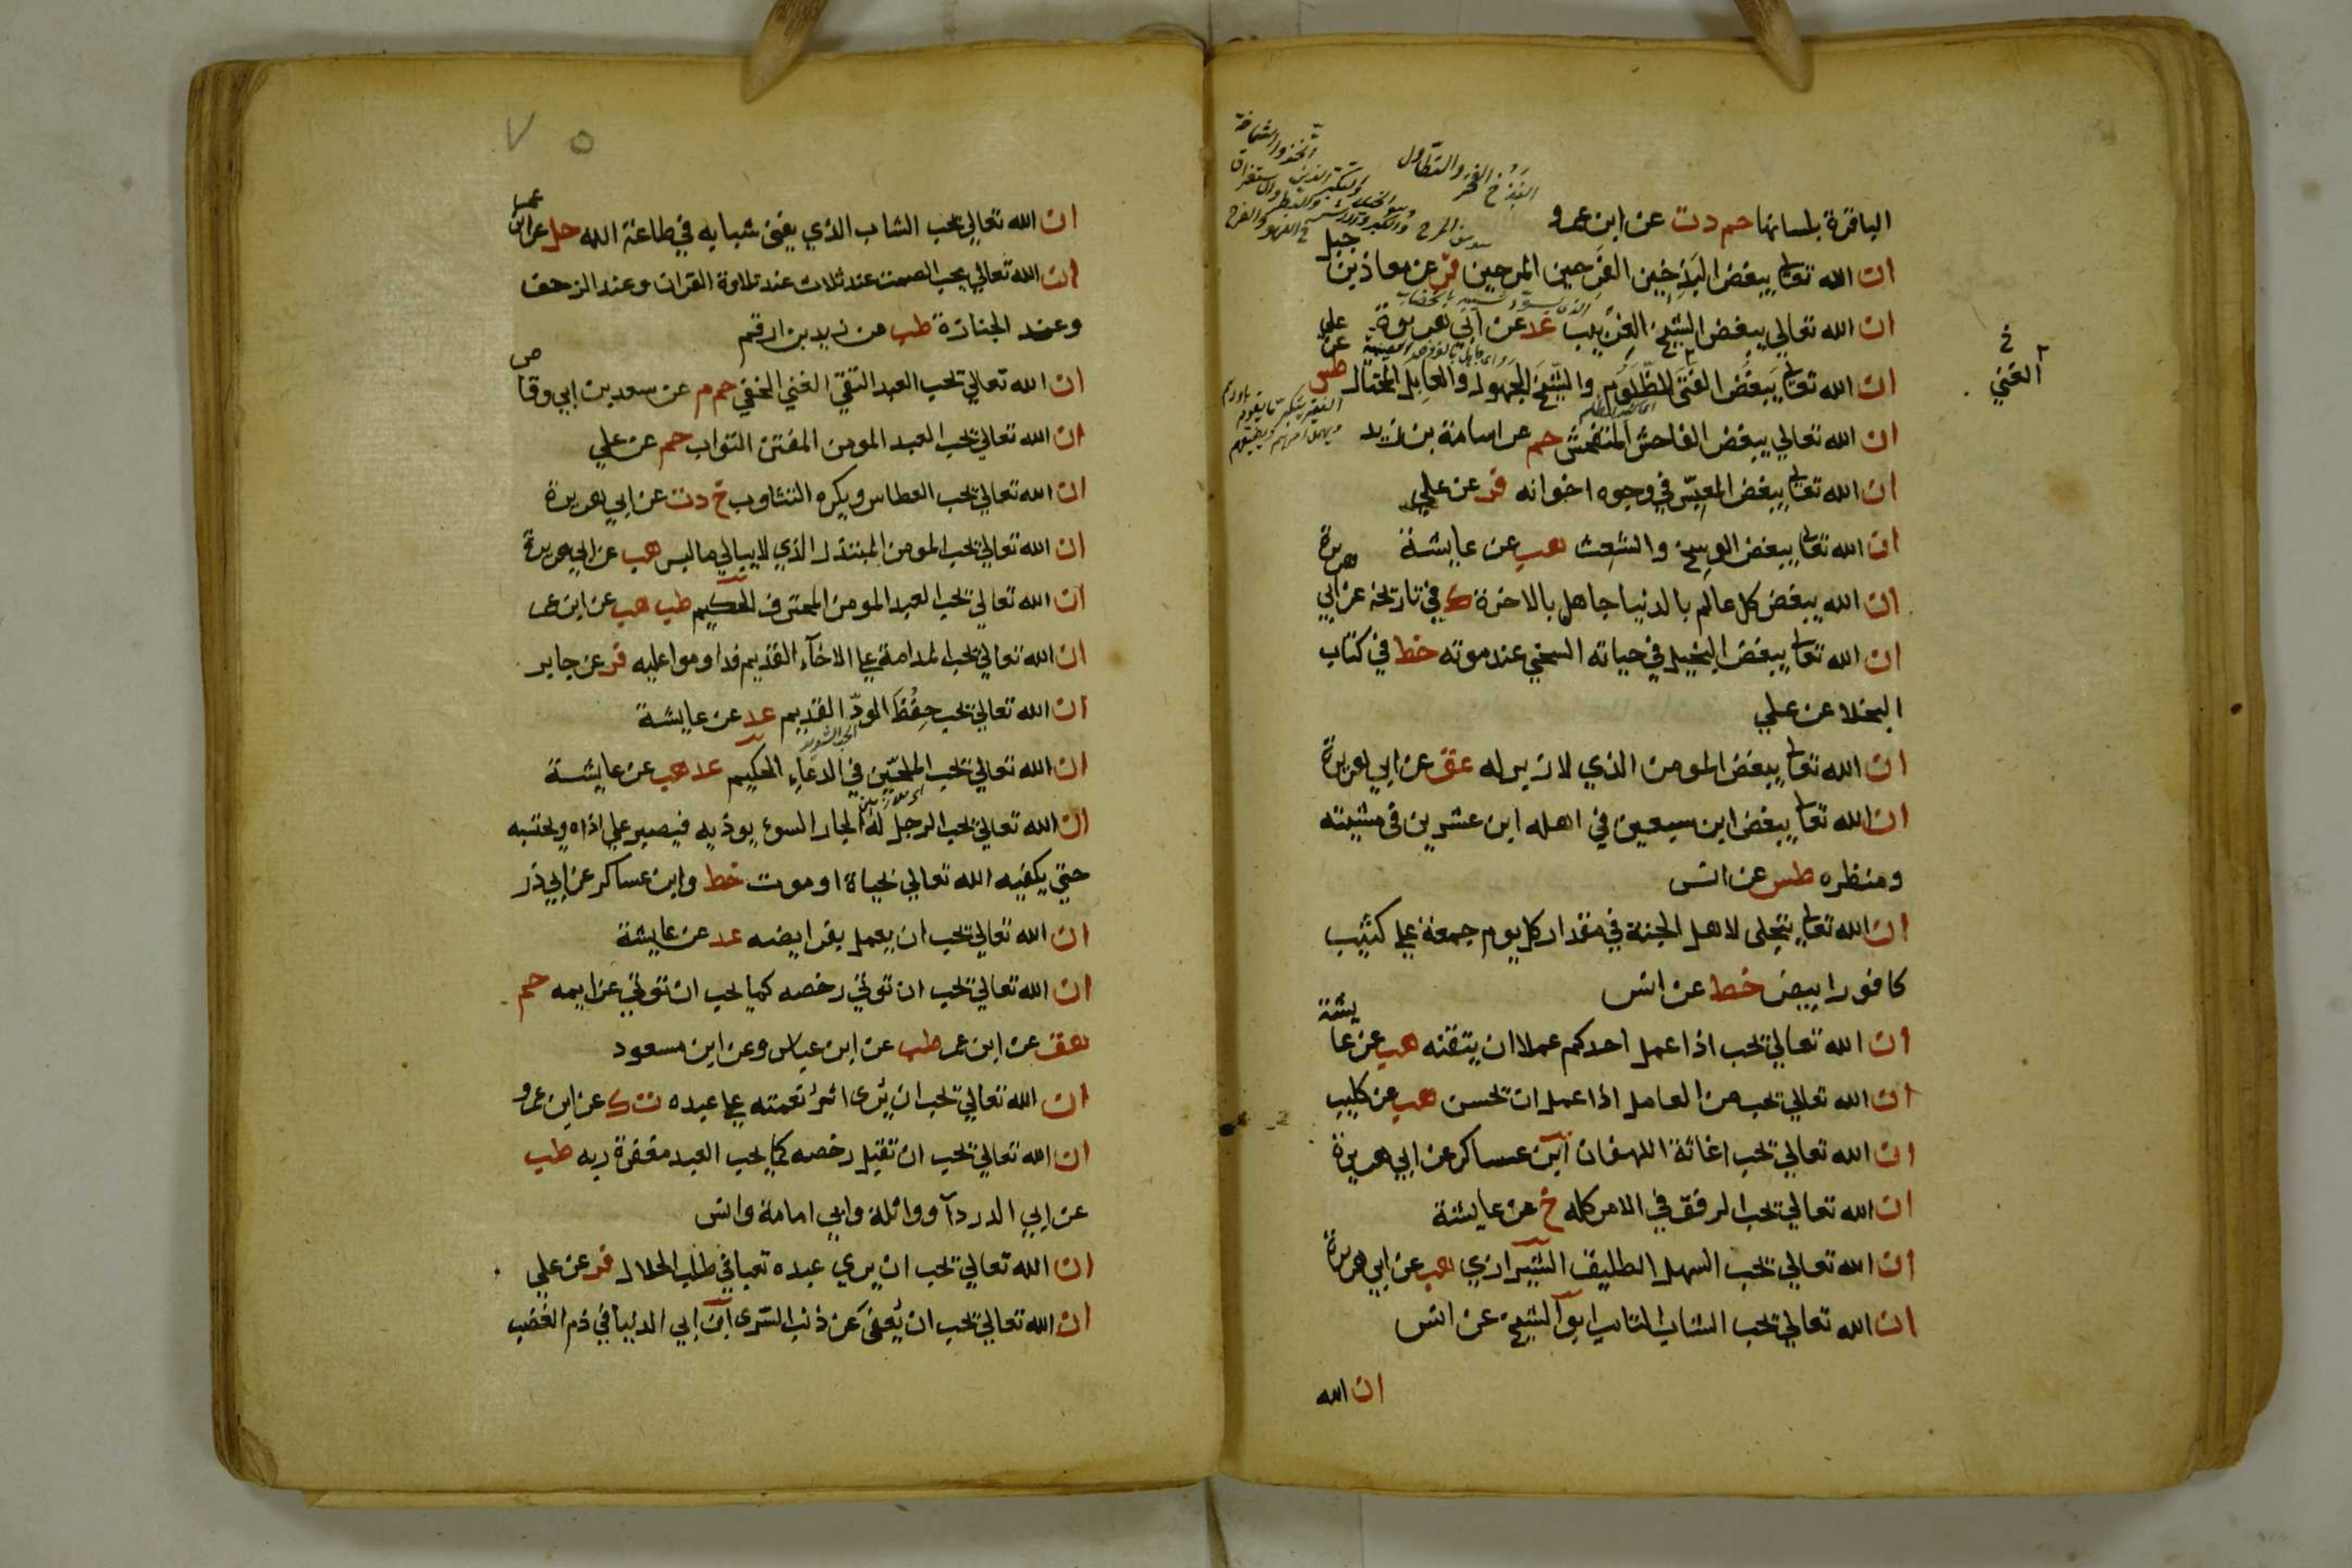 الباقرة بلسانها حم د ت عن ابن عمرو
ان الله تعالى يبغض البذخين الفرحين المرحين فر عن معاذ بن جبل
ان الله تعالي يبغض الشيخ الغربيب عد عن ابي هريرة
ان الله تعالى يبغض الغني الظلوم والشيخ الجهول والعايل المختال طس عن علي
ان الله تعالي يبغض الفاحش المتفحش حم عن اسامة بن زيد
ان الله تعالى يبغض المعبس في وجوه اخوانه فر عن علي
ان الله تعالى يبغض الوسخ والشعث هب عن عايشة
ان الله يبغض كل عالم بالدنيا جاهل بالاخرة ك في تاريخه عن ابي هريرة
ان الله تعالى يبغض البخيل في حياته السخي عند موته خط في كتاب
البخلا عن علي
ان الله تعالى يبغض المومن الذي لا زبر له عق عن ابي هريرة
ان الله تعالى يبغض ابن سبعين في اهله ابن عشرين في مشيته
ومنظره طس عن انس
ان الله تعالى يتجلى لاهل الجنة في مقدار كل يوم جمعة علي كثيب
كافور ابيض خط عن انس
ان الله تعالي يحب اذا عمل احدكم عملا ان يتقنه هب عن عايشة
ان الله تعالي يحب من العامل اذا عمل ان يحسن هب عن كليب
ان الله تعالي يحب اغاثة اللهفان ابن عساكر عن ابي هريرة
ان الله تعالي يحب الرفق في الامر كله خ عن عايشة
ان الله تعالي يحب السهل الطليق الشيرازي هب عن ابي هريرة
ان الله تعالي يحب الشاب التايب ابو الشيخ عن انس
ان الله
الغني خ
البذخ الفخر والتطاول
٧٥
ان الله تعالي يحب الشاب الذي يفني شبابه في طاعة الله حل عن ابن عمر
ان الله تعالي يحب الصمت عند ثلاث عند تلاوة القران وعند الزحف
وعند الجنازة طب عن زيد بن ارقم
ان الله تعالي يحب العبد التقي الغني الخفي حم م عن سعد بن ابي وقاص
ان الله تعالي يحب العبد المومن المفتن التواب حم عن علي
ان الله تعالي يحب العطاس ويكره التثاوب خ د ت عن ابي هريرة
ان الله تعالي يحب المومن المبتذل الذي لا يبالي ما لبس هب عن ابي هريرة
ان الله تعالي يحب العبد المومن المحترف الحكيم طب هب عن ابن عمر
ان الله تعالي يحب المداومة علي الاخآء القديم فداوموا عليه فر عن جابر
ان الله تعالي يحب حفظ الود القديم عد عن عايشة
ان الله تعالي يحب الملحين في الدعاء الحكيم عد هب عن عايشة
ان الله تعالي يحب الرجل له الجار السوء يوذيه فيصبر علي اذاه ويحتسبه
حتي يكفيه الله تعالي بحياة او موت خط وابن عساكر عن ابي ذر
ان الله تعالي يحب ان يعمل بفرايضه عد عن عايشة
ان الله تعالي يحب ان توتي رخصه كما يحب ان توتي عزايمه حم
هق عن ابن عمر طب عن ابن عباس وعن ابن مسعود
ان الله تعالي يحب ان يُرى اثر نعمته علي عبده ت ك عن ابن عمرو
ان الله تعالي يحب ان تقبل رخصه كما يحب العبد مغفرة ربه طب
عن ابي الدردآ وواثلة وابي امامة وانس
ان الله تعالي يحب ان يري عبده تعبا في طلب الحلال فر عن علي
ان الله تعالي يحب ان يُعفى عن ذنب السري ابن ابي الدنيا في ذم الغضب